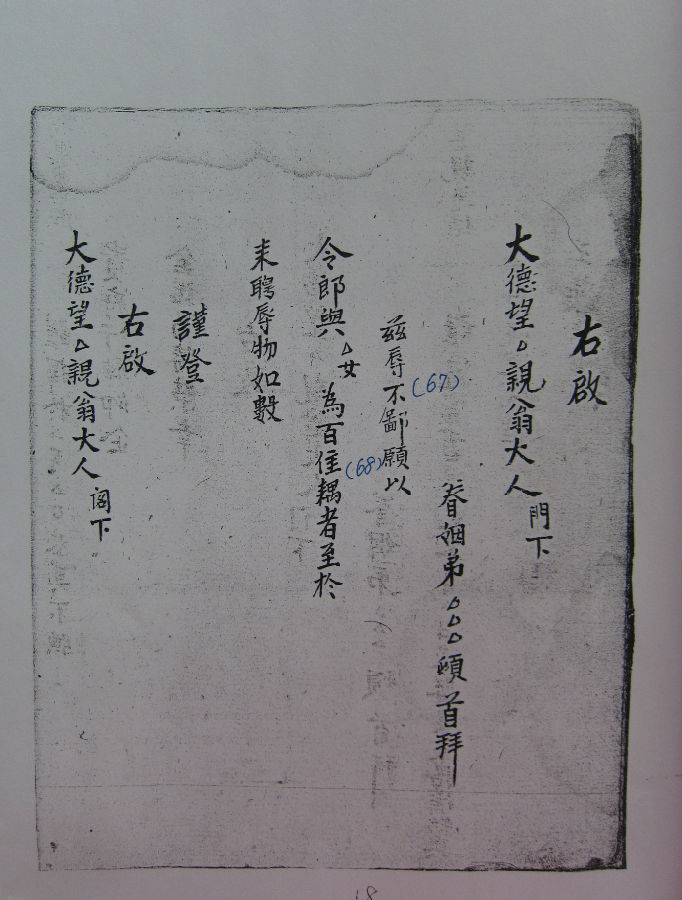 右啟
大德望△親翁大人門下
眷姻弟△△△頓首拜
茲辱不鄙願以
(67)
令郎與△女為百佳耦者至於
(68)
来聘辱物如數
謹登
右啟
大德望△親翁大人閣下
18